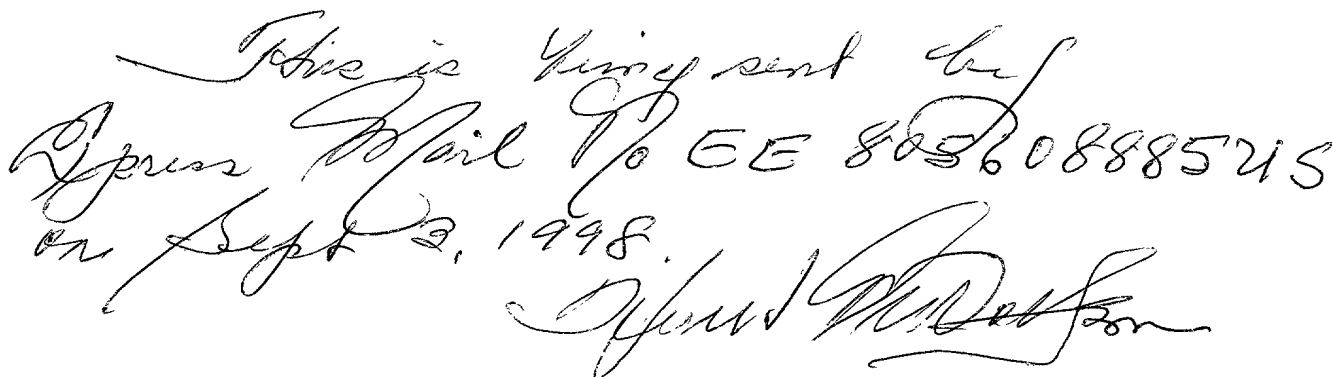 This is being sent by
Express Mail No EE 805608885US
on Sept 3, 1998.